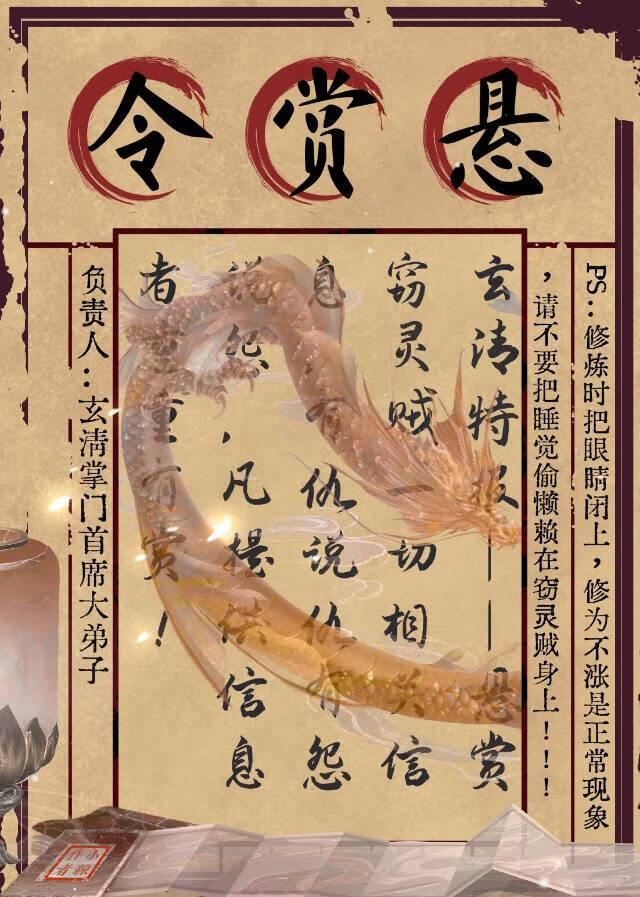 悬赏令
PS：修炼时把眼睛闭上，修为不涨是正常现象
，请不要把睡觉偷懒赖在窃灵贼身上！！！
玄清特报——悬赏
窃灵贼一切相关信
息，有仇说仇有怨
说怨，凡提供信息
者重重有赏！
负责人：玄清掌门首席大弟子
作者